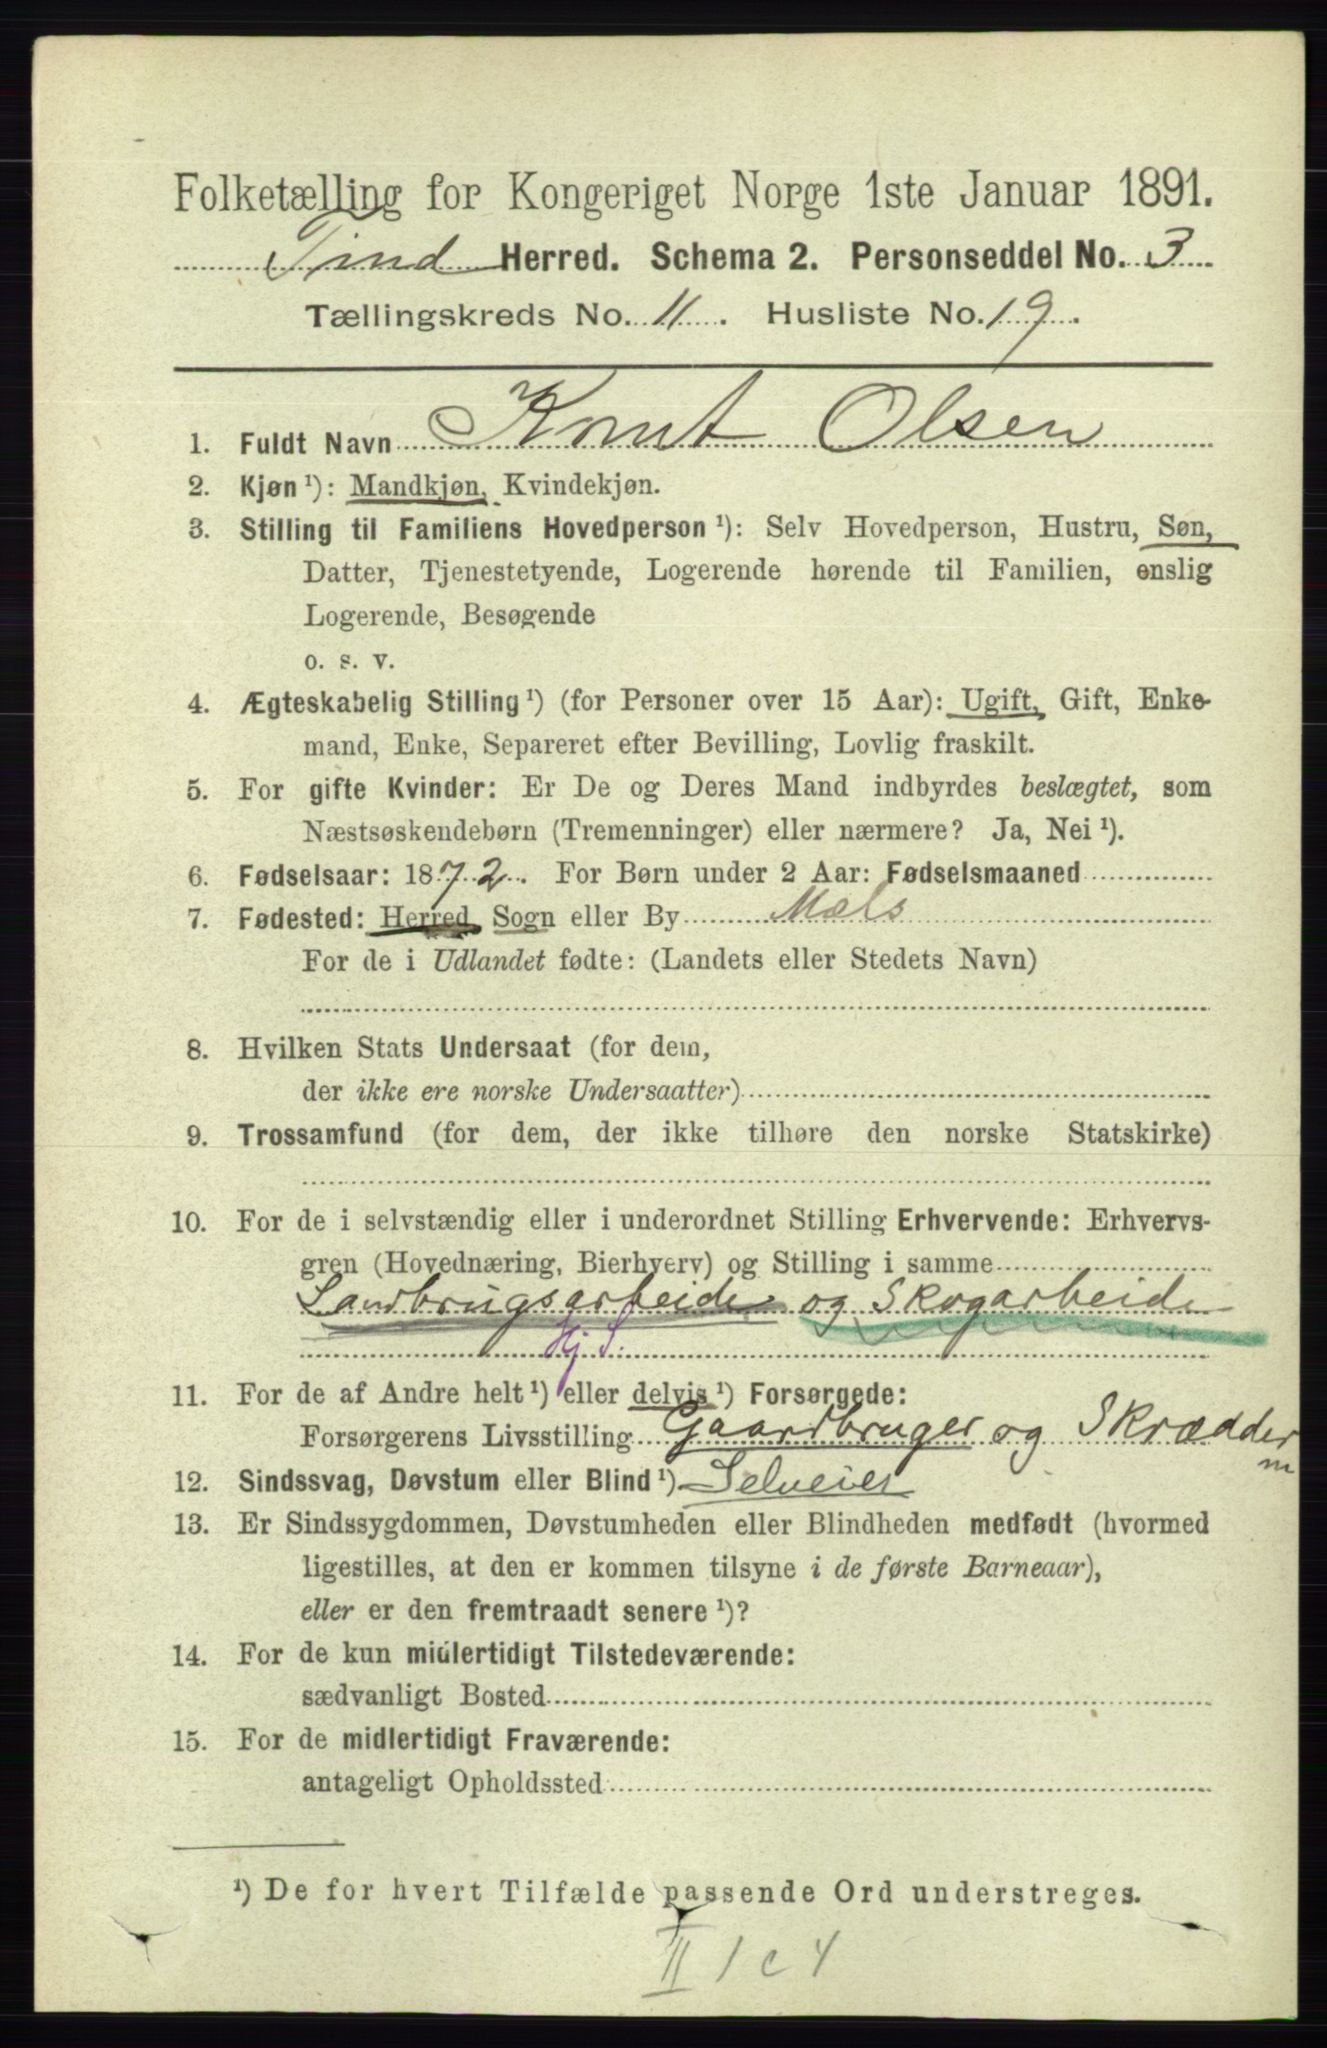 Folketælling for Kongeriget Norge 1ste Januar 1891.
Tind Herred. Schema 2. Personseddel No. 3
Tællingskreds No. 11. Husliste No. 19.
1. Fuldt Navn Knut Olsen
2. Kjøn ¹): Mandkjøn, Kvindekjøn.
3. Stilling til Familiens Hovedperson ¹): Selv Hovedperson, Hustru, Søn,
Datter, Tjenestetyende, Logerende hørende til Familien, enslig
Logerende, Besøgende
o. s. v.
4. Ægteskabelig Stilling ¹) (for Personer over 15 Aar): Ugift, Gift, Enke-
mand, Enke, Separeret efter Bevilling, Lovlig fraskilt.
5. For gifte Kvinder: Er De og Deres Mand indbyrdes beslægtet, som
Næstsøskendebørn (Tremenninger) eller nærmere? Ja, Nei ¹).
6. Fødselsaar: 1872. For Børn under 2 Aar: Fødselsmaaned
7. Fødested: Herred, Sogn eller By Mæls
For de i Udlandet fødte: (Landets eller Stedets Navn)
8. Hvilken Stats Undersaat (for dem,
der ikke ere norske Undersaatter)
9. Trossamfund (for dem, der ikke tilhøre den norske Statskirke)
10. For de i selvstændig eller i underordnet Stilling Erhvervende: Erhvervs-
gren (Hovednæring, Bierhverv) og Stilling i samme
Landbrugsarbeide og Skogarbeide
Hj S.
11. For de af Andre helt ¹) eller delvis ¹) Forsørgede:
Forsørgerens Livsstilling Gaardbruger og Skrædder
m
12. Sindssvag, Døvstum eller Blind ¹) Selveier
13. Er Sindssygdommen, Døvstumheden eller Blindheden medfødt (hvormed
ligestilles, at den er kommen tilsyne i de første Barneaar),
eller er den fremtraadt senere ¹)?
14. For de kun midlertidigt Tilstedeværende:
sædvanligt Bosted
15. For de midlertidigt Fraværende:
antageligt Opholdssted
¹) De for hvert Tilfælde passende Ord understreges.
II 1 c 4